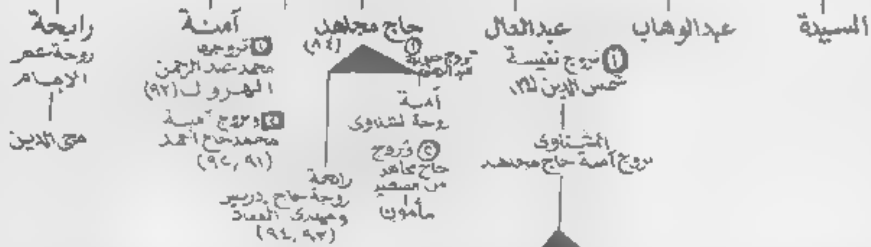 السيدة
عبدالوهاب
عبدالعال
① تزوج نفيسة
شمس الدين
الشناوى
تزوج آمنة حاج مجاهد
حاج مجاهد
(٨٤)
① تزوج
آمنة
زوجة الشناوى
② وتزوج
حاج مجاهد
من الصغير
مأمون
رابحة
زوجة حاج إدريس
ومهدى العقاد
(٩٣، ٩٤)
آمنة
① تزوجها
محمد عبدالرحمن
(٩٢)
② وتزوج آمنة
محمد حاج أحمد
(٩١، ٩٤)
رابحة
زوجة عمر
الإمام
محى الدين